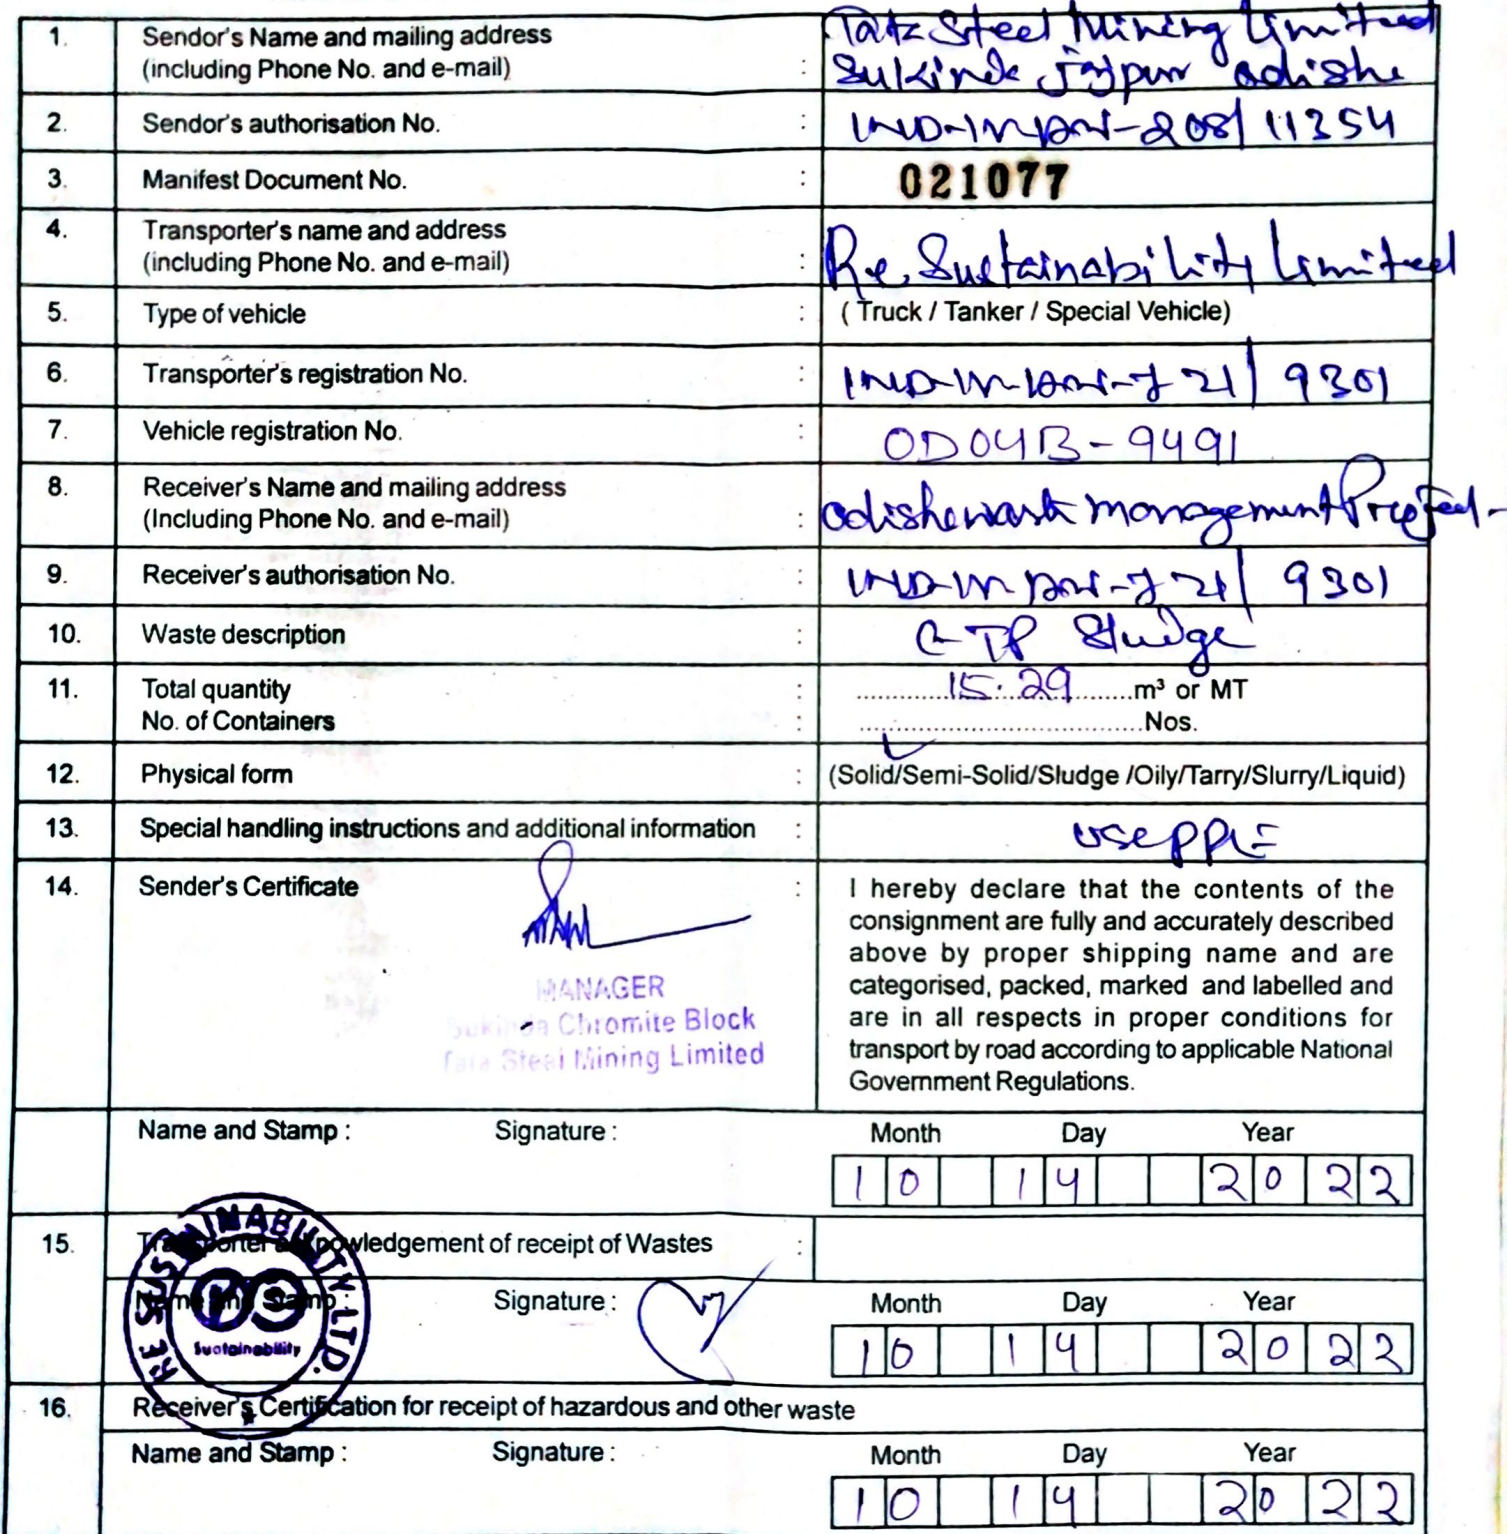 1. Sendor's Name and mailing address
(including Phone No. and e-mail) :
Tata Steel Mining Limited
Sukinda Jajpur odisha
2. Sendor's authorisation No. : IND-IV-HW-208/11354
3. Manifest Document No. : 021077
4. Transporter's name and address
(including Phone No. and e-mail) : Re. Sustainability Limited
5. Type of vehicle : ( Truck / Tanker / Special Vehicle)
6. Transporter's registration No. : 21/9301
7. Vehicle registration No. : OD04B-9491
8. Receiver's Name and mailing address
(Including Phone No. and e-mail) : odisha waste management Project-
9. Receiver's authorisation No. : 21/9301
10. Waste description : Sludge
11. Total quantity : ..............15.29..........m³ or MT
No. of Containers : ........................................Nos.
12. Physical form : (Solid/Semi-Solid/Sludge /Oily/Tarry/Slurry/Liquid)
13. Special handling instructions and additional information : use PPE
14. Sender's Certificate :
MANAGER
Sukinda Chromite Block
Tata Steel Mining Limited
I hereby declare that the contents of the
consignment are fully and accurately described
above by proper shipping name and are
categorised, packed, marked and labelled and
are in all respects in proper conditions for
transport by road according to applicable National
Government Regulations.
Name and Stamp : Signature : Month Day Year
10 14 2022
15. Transporter acknowledgement of receipt of Wastes :
Name and Stamp : Signature : Month Day Year
10 14 2022
RE SUSTAINABILITY LTD.
Sustainability
16. Receiver's Certification for receipt of hazardous and other waste
Name and Stamp : Signature : Month Day Year
10 14 2022